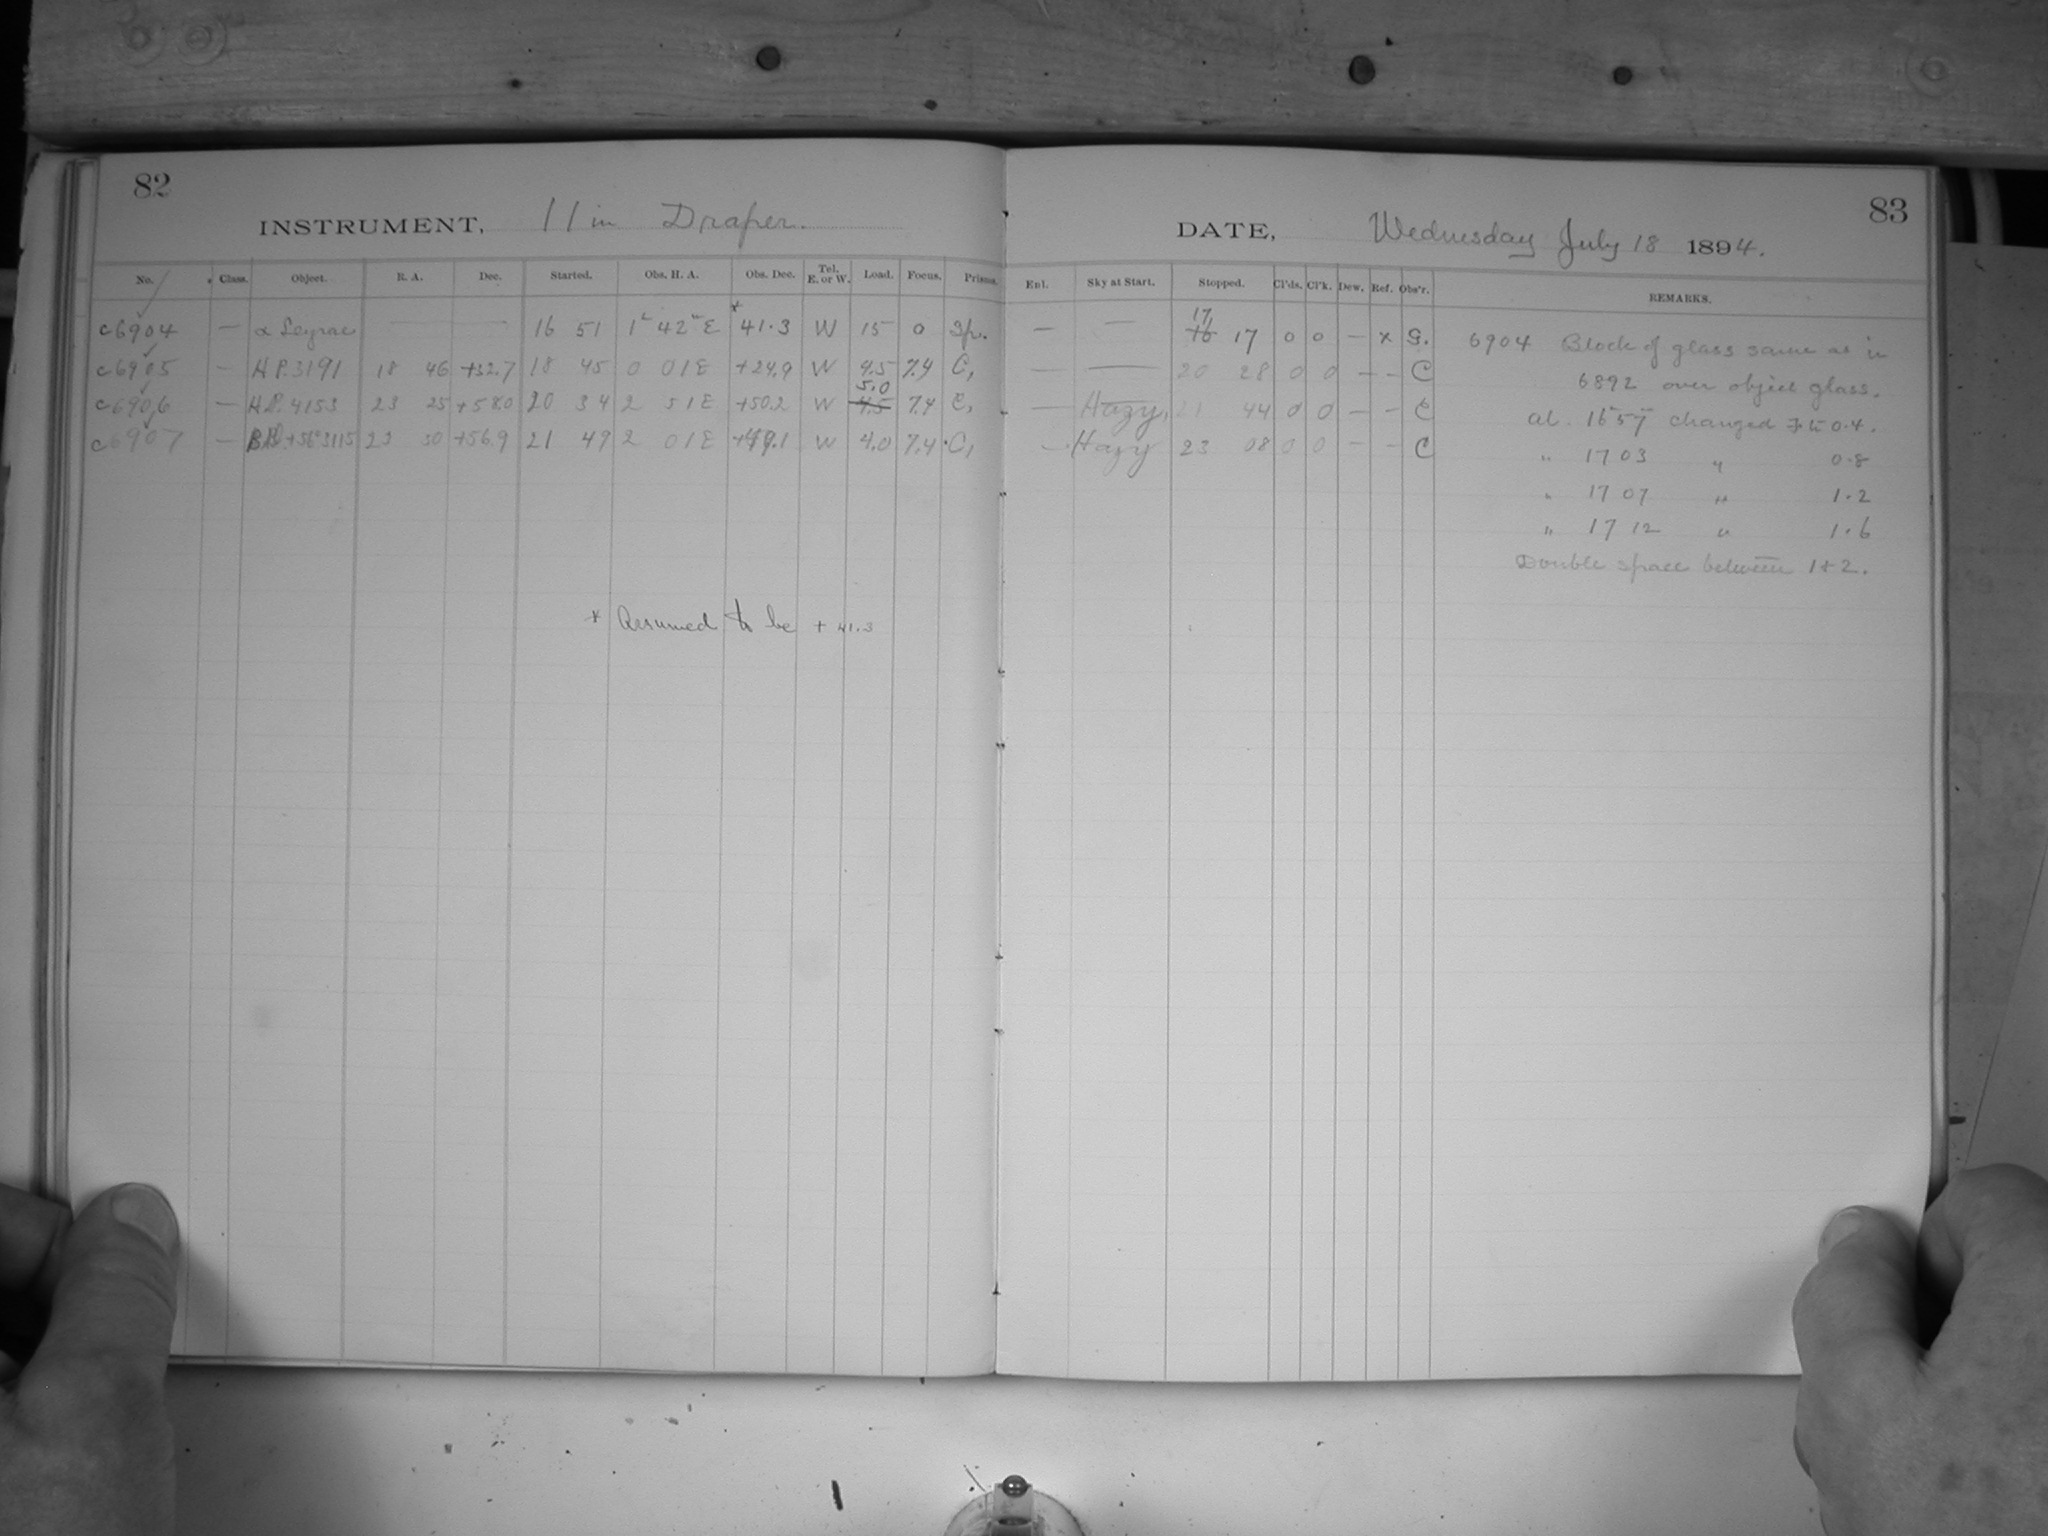 82
INSTRUMENT, 11 in Draper.
No. Class. Object. R. A. Dec. Started. Obs. H. A. Obs. Dec. Tel. E. or W. Load. Focus. Prisms.
c6904 — α Leyrae — — 16 51 1h 42m E *41.3 W 15 0 Sp.
c6905 — H.P. 3191 18 46 +32.7 18 45 0 01E +24.9 W 4.5 7.4 C,
c6906 — H.P. 4153 23 25 +58.0 20 34 2 51E +50.2 W 5.0 4.5 7.4 C,
c6907 — B.D.+56°3115 23 30 +56.9 21 49 2 01E +49.1 W 4.0 7.4 C,
* Assumed to be + 41.3
83
DATE, Wednesday July 18 1894.
Enl. Sky at Start. Stopped. Cl'ds. Cl'k. Dew. Ref. Obs'r. REMARKS.
— — 17 16 17 0 0 — x G.
— — 20 28 0 0 — — C
— Hazy, 21 44 0 0 — — C
— Hazy 23 08 0 0 — — C
6904 Block of glass same as in
6892 over object glass.
at. 16h 57m changed F to 0.4.
" 17 03 " 0.8
" 17 07 " 1.2
" 17 12 " 1.6
Double space between 1+2.